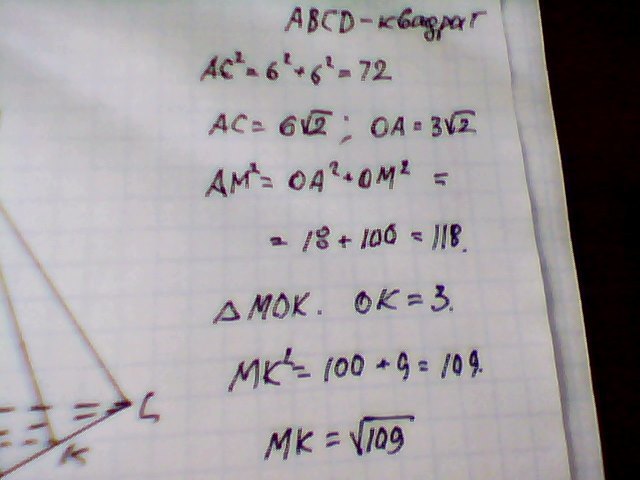 ABCD - квадрат
AC² = 6² + 6² = 72
AC = 6√2 ; OA = 3√2
AM² = OA² + OM² =
= 18 + 100 = 118.
△ MOK. OK = 3.
MK² = 100 + 9 = 109.
MK = √109
C
K